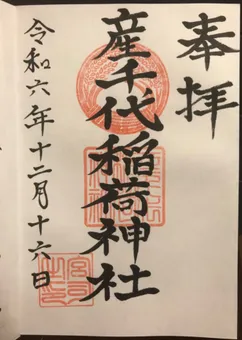 奉拝
産千代稲荷神社
令和六年十二月十六日